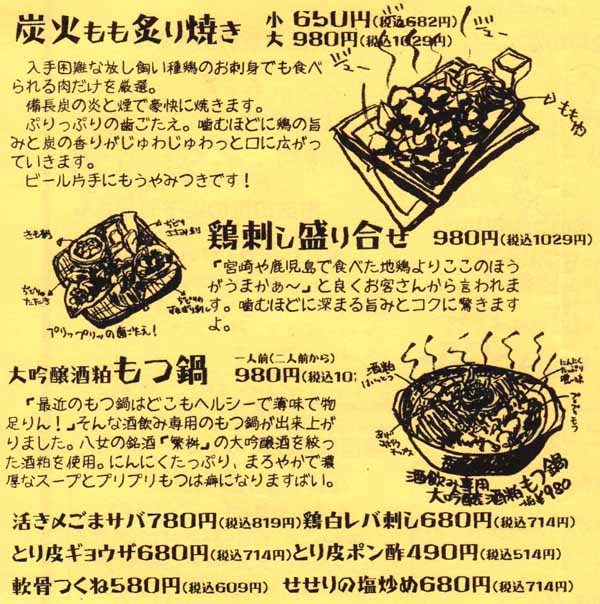 炭火もも炙り焼き
小 650円(税込682円)
大 980円(税込1029円)
入手困難な放し飼い種鶏のお刺身でも食べ
られる肉だけを厳選。
備長炭の炎と煙で豪快に焼きます。
ぷりっぷりの歯ごたえ。噛むほどに鶏の旨
みと炭の香りがじゅわじゅわっと口に広がっ
ていきます。
ビール片手にもうやみつきです!
ももや
鶏刺し盛り合せ 980円(税込1029円)
「宮崎や鹿児島で食べた地鶏よりここのほう
がうまかぁ〜」と良くお客さんから言われま
す。噛むほどに深まる旨みとコクに驚きます
よ。
プリップリッの歯ごたえ!
大吟醸酒粕もつ鍋
一人前(二人前から)
980円(税込10
「最近のもつ鍋はどこもヘルシーで薄味で物
足りん!」そんな酒飲み専用のもつ鍋が出来上が
りました。八女の銘酒「繁桝」の大吟醸酒を絞っ
た酒粕を使用。にんにくたっぷり、まろやかで濃
厚なスープとプリプリもつは癖になりますばい。
酒粕
にんにく
たっぷり
酒飲み専用
大吟醸酒粕もつ鍋
¥980
活き〆ごまサバ780円(税込819円)鶏白レバ刺し680円(税込714円)
とり皮ギョウザ680円(税込714円)とり皮ポン酢490円(税込514円)
軟骨つくね580円(税込609円) せせりの塩炒め680円(税込714円)